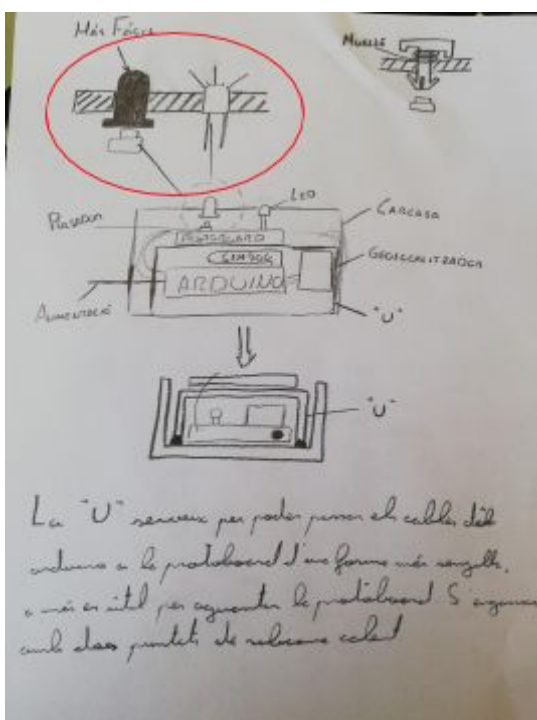 Más Fácil
MUELLE
LED
PULSADOR
CARCASA
PROTOBOARD
GEOLOCALITZADOR
SIM
ARDUINO
ALIMENTACIÓ
"U"
"U"
La "U" serveix per poder passar els cables del
arduino a la protoboard d'una forma més senzilla,
a més es útil per aguantar la protoboard. S'aguanta
amb dos puntets de silicona calent